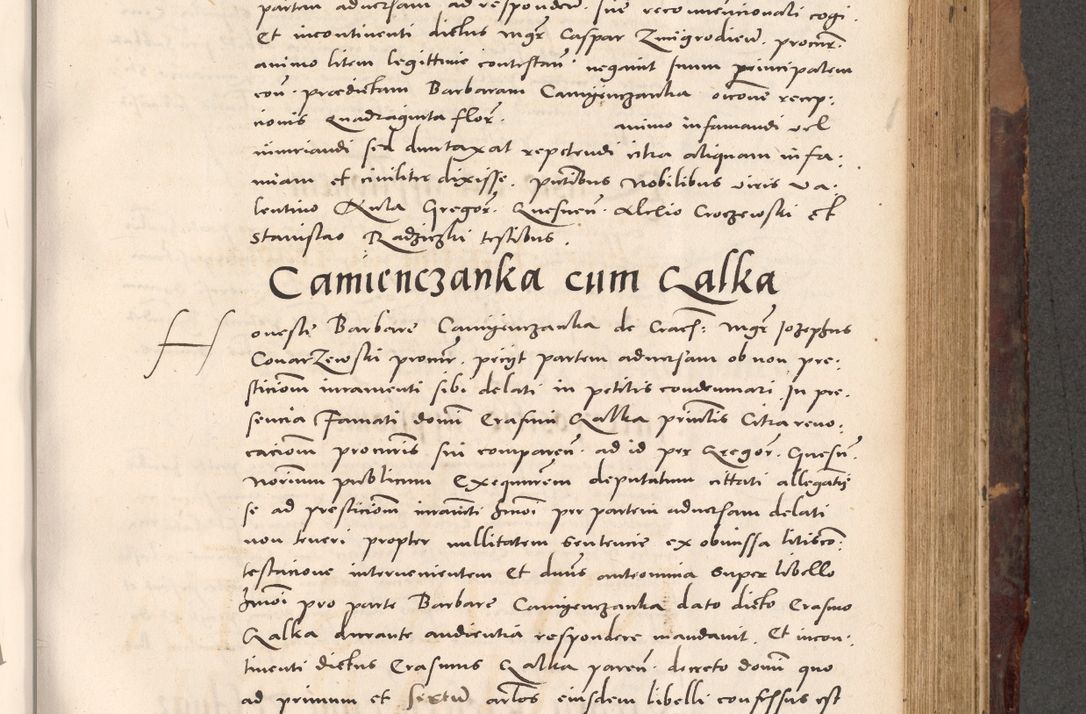 partem adversam ad responden̄. sive reconventionali cogi.
Et incontinenti dictus mgr̄ Caspar Zmigrodien̄. procur̄.
animo litem legittime contestan̄ negavit suum principalem
con̄. praedictam Barbaram Camyenczanka occōne recep-
cionis Quadraginta flor̄. animo infamandi vel
iniuriandi sed duntaxat repetendi citra aliquam infa-
miam et civiliter dixisse. pn̄tibus Nobilibus viris Va-
lentino Gregor̄. Quesnen̄. Alexio Croczewski et
Stanislao Radziczki testibus.
Camienczanka cum Qalka
Honeste Barbare Camyenczanka de Crac̄: mgr̄ Jozephus
Conarzewski procur̄. pecyt partem adversam ob non pre-
sticiom̄ iuramenti sibi delati in petitis condemnari. In pre-
sencia Famati domī Erasmi Qalka princ̄lis Citra revo-
caciom̄ procuris sui comparen̄. ad id per Gregor̄. Quesn̄.
Norium publicum Exequirem deputatum cittati allegātis
se ad presticiom̄ iuramti hmōi per partem adversam delati
non teneri propter nullitatem sentencie ex obmissa litiscō-
testacione intervenientem Et dnūs anteomnia super libello
hmōi pro parte Barbare Camyenczanka dato dicto Erasmo
Qalka durante audientia respondere mandavit. Et incon-
tinenti dictus Erasmus Qalka paren̄. decreto domī quo
ad primum et sextum artlos eiusdem libelli confessus est